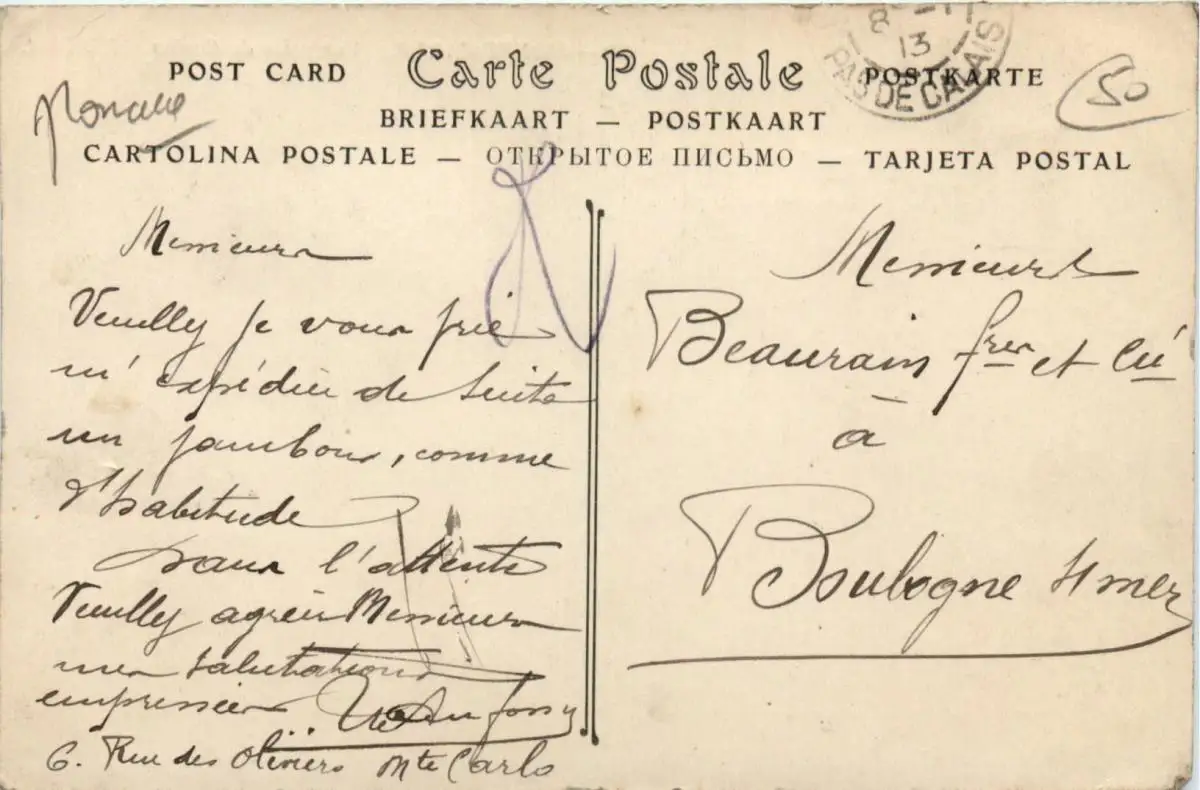 8 - 11
13
PAS DE CALAIS
POST CARD Carte Postale POSTKARTE
50
BRIEFKAART — POSTKAART
CARTOLINA POSTALE — ОТКРЫТОЕ ПИСЬМО — TARJETA POSTAL
Messieurs
Veuilly je vous prie
m'expédier de suite
un jambon, comme
d'habitude
Dans l'attente
Veuilly agréer Messieurs
mes salutations
empressées
6. Rue des Oliviers Mte Carlo
Messieurs
Beaurain frères et Cie
à
Boulogne s/mer